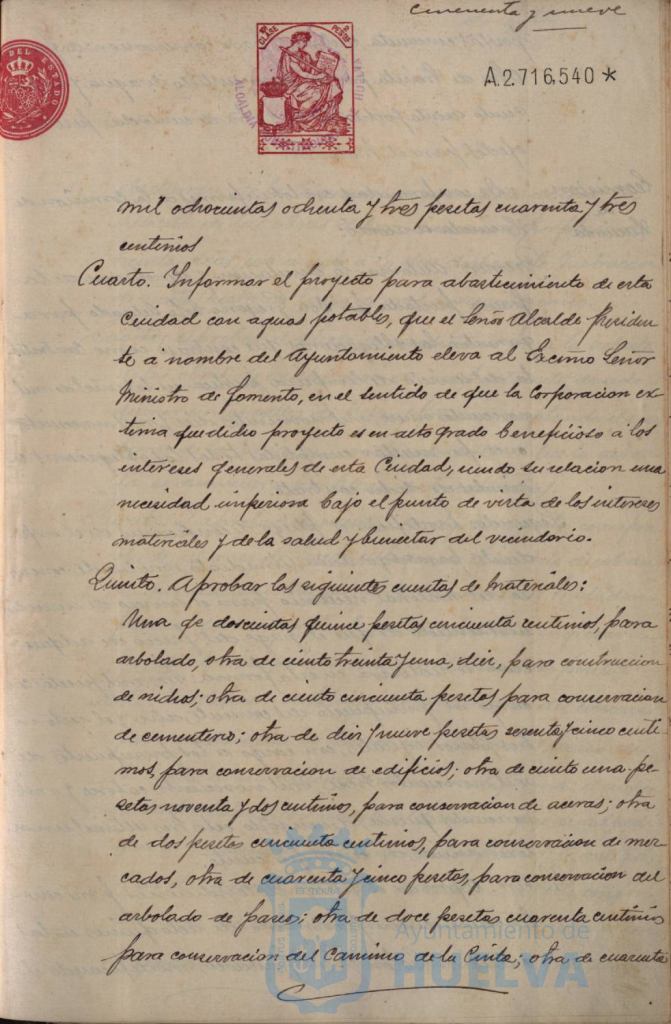 cincuenta y nueve
DEL ESTADO
CLASE
PESETAS
ALCALDIA
A.2.716,540 *
mil ochocientas ochenta y tres pesetas cuarenta y tres
centimos
Cuarto. Informar el proyecto para abastecimiento de esta
Ciudad con aguas potables, que el Señor Alcalde-Presiden
te á nombre del Ayuntamiento eleva al Excmo Señor
Ministro de fomento, en el sentido de que la Corporacion ex-
tima que dicho proyecto es en alto grado beneficioso á los
intereses generales de esta Ciudad, siendo su relacion una
necesidad imperiosa bajo el punto de vista de los intereses
materiales y de la salud y bienestar del vecindario.
Quinto. Aprobar las siguientes cuentas de materiales:
Una de doscientas quince pesetas cincuenta centimos, para
arbolado, otra de ciento treinta y una, diez, para construccion
de nichos; otra de ciento cincuenta pesetas para conservacion
de cementerio; otra de diez y nueve pesetas sesenta y cinco centi-
mos, para conservacion de edificios; otra de ciento una pe-
setas noventa y dos centimos, para conservacion de aceras; otra
de dos pesetas cincuenta centimos, para conservacion de mer-
cados, otra de cuarenta y cinco pesetas, para conservacion del
arbolado de paseos; otra de doce pesetas cuarenta centimos
para conservacion del Camino de la Cinta; otra de cuarenta
Ayuntamiento de
HUELVA